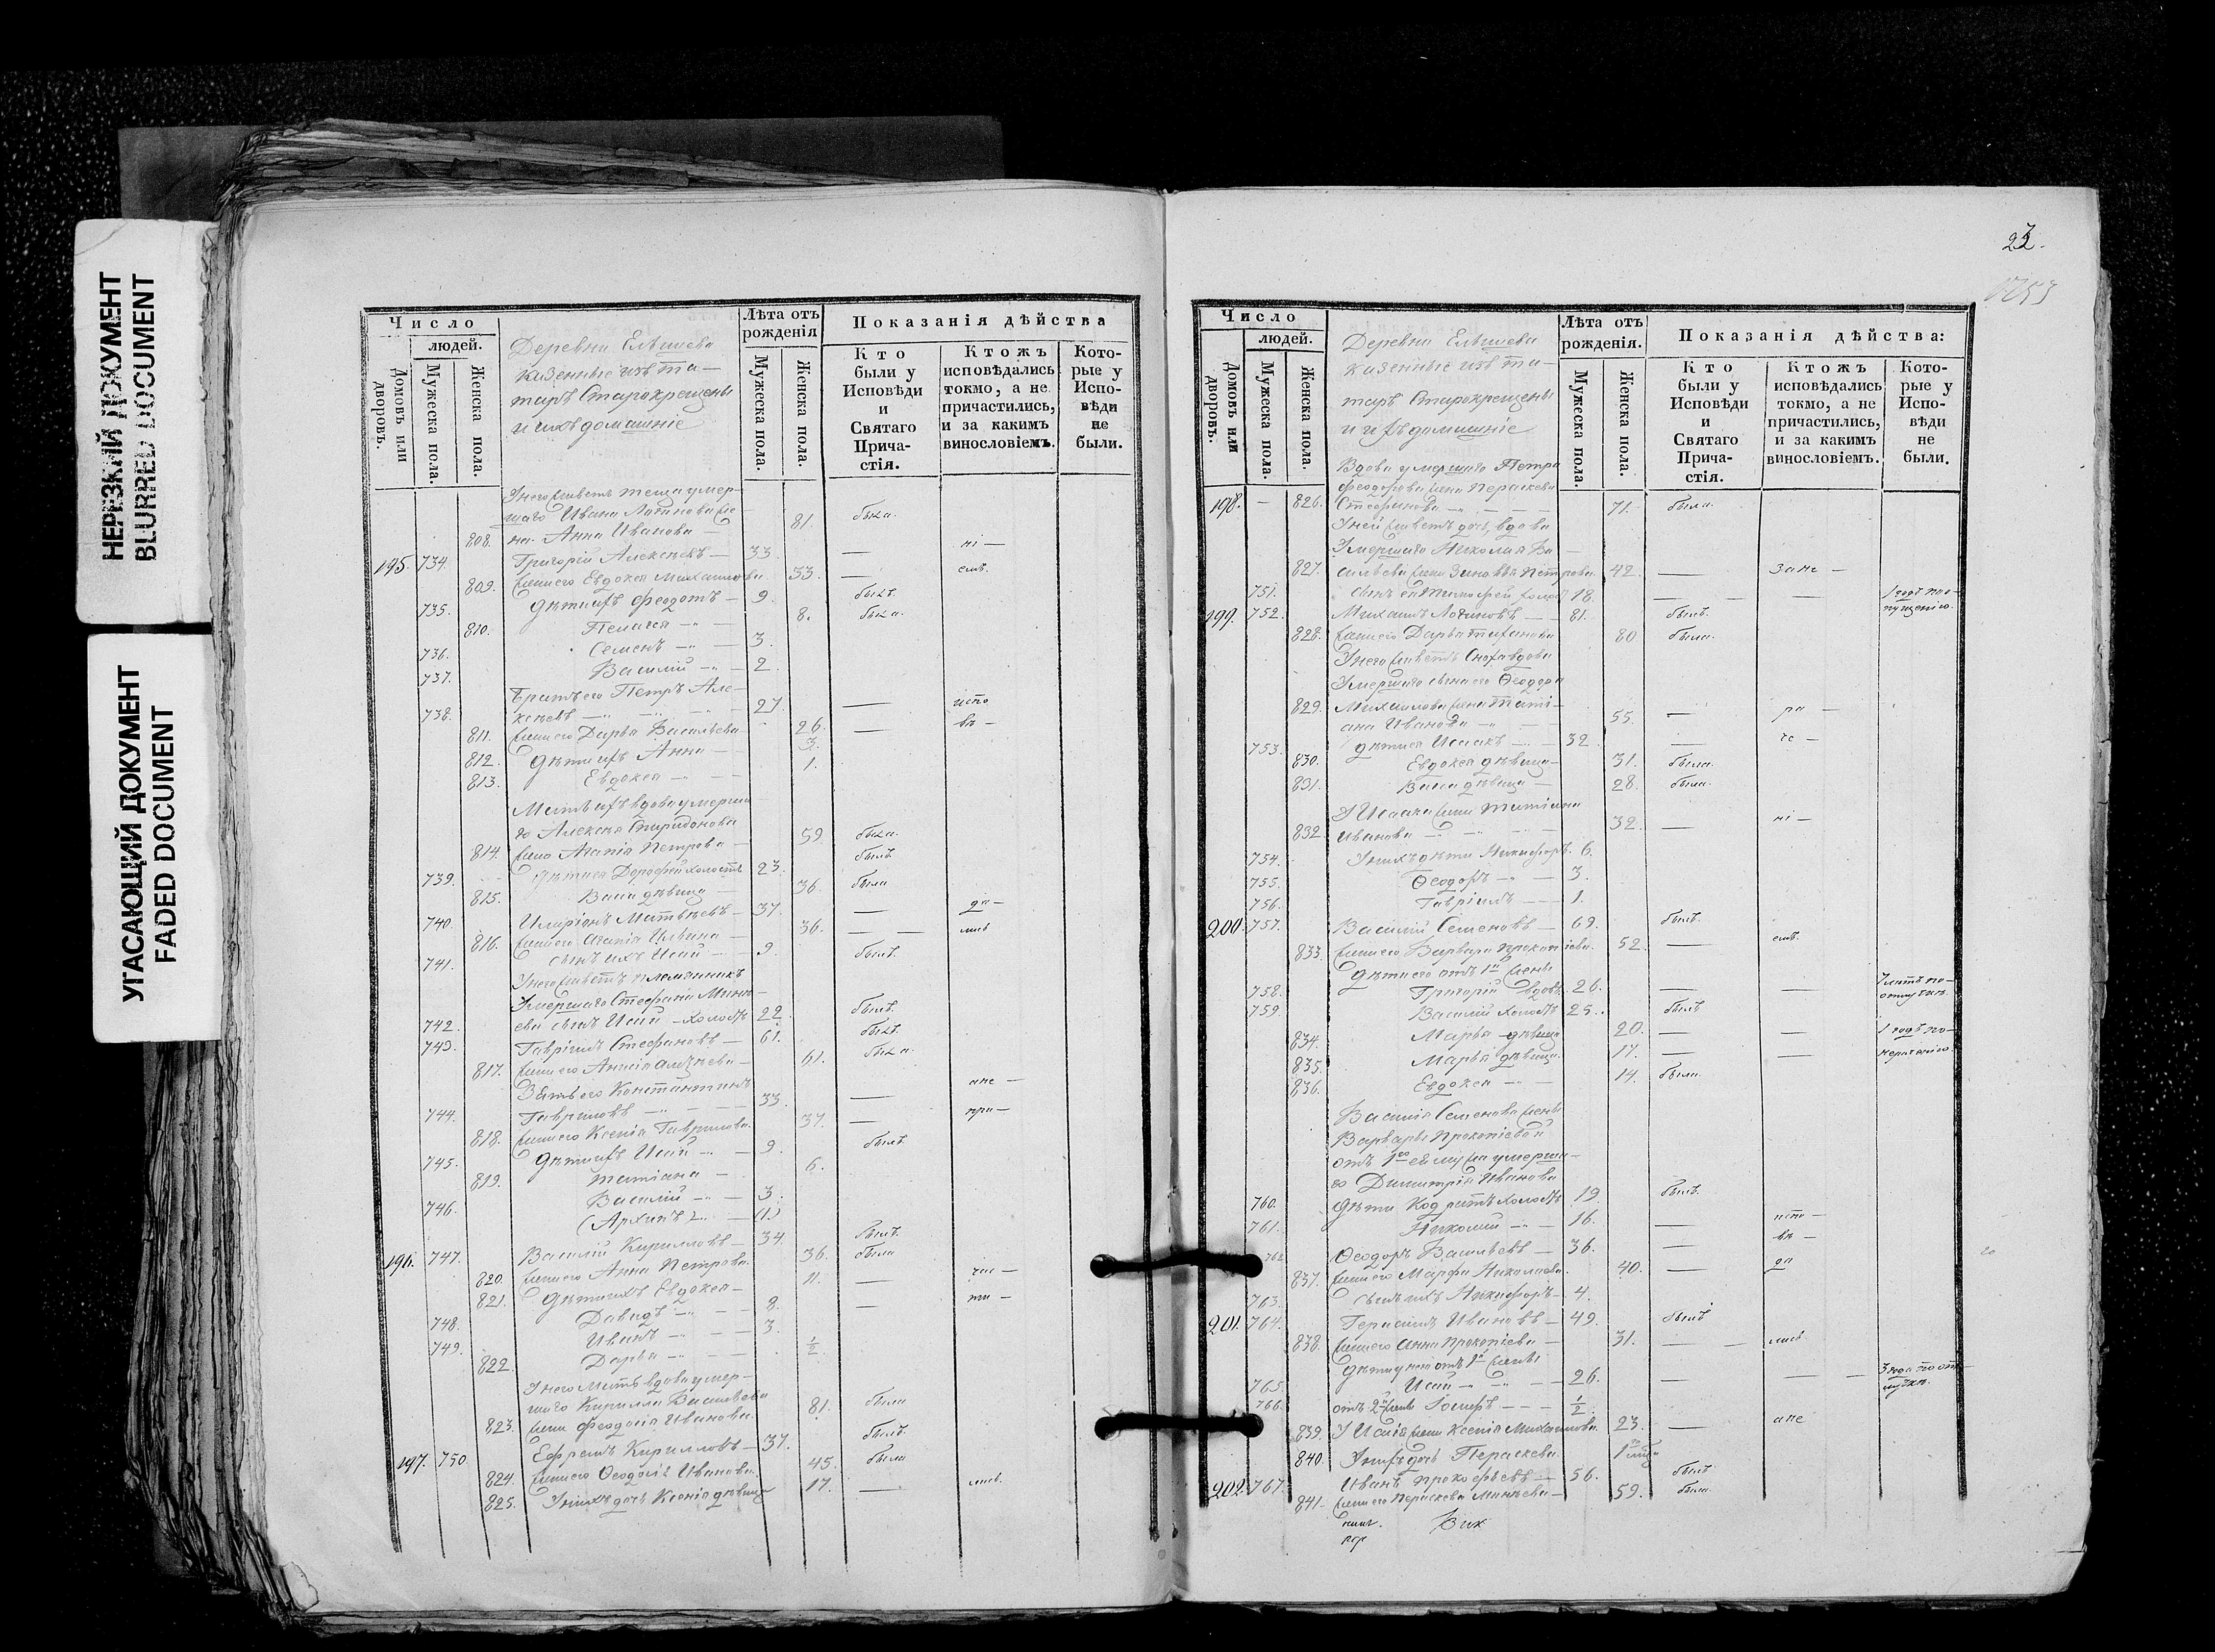 НЕРЕЗКИЙ ДОКУМЕНТ
BLURRED DOCUMENT
УГАСАЮЩИЙ ДОКУМЕНТ
FADED DOCUMENT
Число
людей.
Домовъ или дворовъ.
Мужеска пола.
Женска пола.
Деревни Елышева
казенные изъ та-
таръ Старокрещены
и ихъ домашніе
Лѣта отъ рожденія
Мужеска пола.
Женска пола.
Показанія дѣйства
Кто были у Исповѣди и Святаго Прича-стія.
Ктожъ исповѣдались токмо, а не причастились, и за какимъ винословіемъ.
Кото-рые у Испо-вѣди не были.
У него живетъ теща умер-
шаго Ивана Логинова же-
808. на Анна Иванова 81. была.
195. 734. Григорій Алексѣевъ 33. — ні —
809. жена его Евдокея Михаилова 33. — емъ.
735. Дѣти ихъ Феодотъ 9. былъ.
810. Пелагея 8. была.
736. Семенъ 3.
737. Василій 2.
Братъ его Петръ Але-
738. ксѣевъ 27. — испо
811. жена его Дарья Васильева 26. — вѣ —
812. Дѣти ихъ Анна 3.
813. Евдокея 1.
Мать ихъ вдова умерша
го Алексѣя Спиридонова
814. жена Агапія Петрова 59. была.
739. Дѣти ея Дорофей холостъ 23. былъ.
815. Васа дѣвица 36. была
740. Иларіонъ Матвѣевъ 37. — да —
816. жена его Агапія 36. — —
741. сынъ ихъ Исай 9. былъ.
У него живетъ племянникъ
Умершаго Стефана Минѣ-
742. ева сынъ Исай холостъ 22. былъ.
743. Гавріилъ Стефановъ 61. былъ.
817. жена его Анисія 61. была.
Зять его Константинъ
744. Гавриловъ 33. — ане —
818. жена его Ксенія Гаврилова 37. — при —
745. Дѣти ихъ Исай 9. былъ.
819. Татіана 6.
746. Василій 3.
(Архипъ) (1.)
196. 747. Василій Кирилловъ 34. былъ.
820. жена его Анна Петрова 36. была
821. Дѣти ихъ Евдокея 11. — час —
748. Давидъ 8. — ти —
749. Иванъ 3.
822. Дарья ½.
У него Мать вдова умер-
шаго Кирилла Васильева
823. жена Феодосія Иванова 81. была
197. 750 Ефремъ Кирилловъ 37. былъ.
824. жена его Ѳеодосія Иванова 45. была
825. У нихъ дочь Ксенія дѣвица 17. —
23.
Число
людей.
Домовъ или дворовъ.
Мужеска пола.
Женска пола.
Деревни Елышева
казенные изъ та-
таръ Старокрещены
и ихъ домашніе
Лѣта отъ рожденія.
Мужеска пола.
Женска пола.
Показанія дѣйства:
Кто были у Исповѣди и Святаго Прича-стія.
Ктожъ исповѣдались токмо, а не причастились, и за какимъ винословіемъ.
Кото-рые у Испо-вѣди не были.
Вдова умершаго Петра
Феодорова жена Параскева
198. — 826. Стефанова 71. была.
У ней живетъ дочь, вдова
Умершаго Николая Ва
827. сильева жена Зиновья Петрова 42. — зане —
751. сынъ ея Тимофей холостъ 18. — — 1 годъ по о-
пущенію.
199. 752. Михаилъ Логиновъ 81. былъ.
828. жена его Дарья 80 была.
У него живетъ Сноха вдова
Умершаго сына его Ѳеодора
829. Михаилова жена Тати-
ана Иванова 55. — ра —
753. Дѣти ея Исаакъ 32. — че —
830. Евдокея дѣвица 31. была.
831. Васа дѣвица 28. была.
У Исаака жена Татіана
832 Иванова 32. — ні —
754. У нихъ дѣти Никифоръ 6.
755. Ѳеодоръ 3.
756. Гавріилъ 1.
200. 757. Василій Семеновъ 69. былъ.
833. жена его Варвара Прокопіева 52. — емъ.
Дѣти его отъ 1й жены
758. Григорій вдовъ 26. — — 7 лѣтъ по
759 Василій холостъ 25. былъ
834. Марья дѣвица 20. — — 1 годъ по-
835. Марья дѣвица 17. — — нераченію.
836. Евдокея 14. была.
Василія Семенова жены
Варвары Прокопіевой
отъ 1го ей мужа умерша-
го Димитрія Иванова
760. Дѣти Кодратъ холостъ 19. былъ.
761. Николай 16. — испо —
762 Ѳеодоръ Васильевъ 36. — вѣ —
837. жена его Марфа Николаева 40. — да
763. сынъ ихъ Никифоръ 4.
201. 764. Герасимъ Ивановъ 49. былъ
838. жена его Анна Прокопіева 31. — —
Дѣти у него отъ 1й жены
765. Исай 26. — — 3 года по от-
лучкѣ.
766. отъ 2й жены ½.
839. У Исаія жена Ксенія Михаилова 23. — ане
840. У нихъ дочь Параскева 1
202. 767. Иванъ Прокофьевъ 56. былъ
841. жена его Параскева Минѣева 59. была.